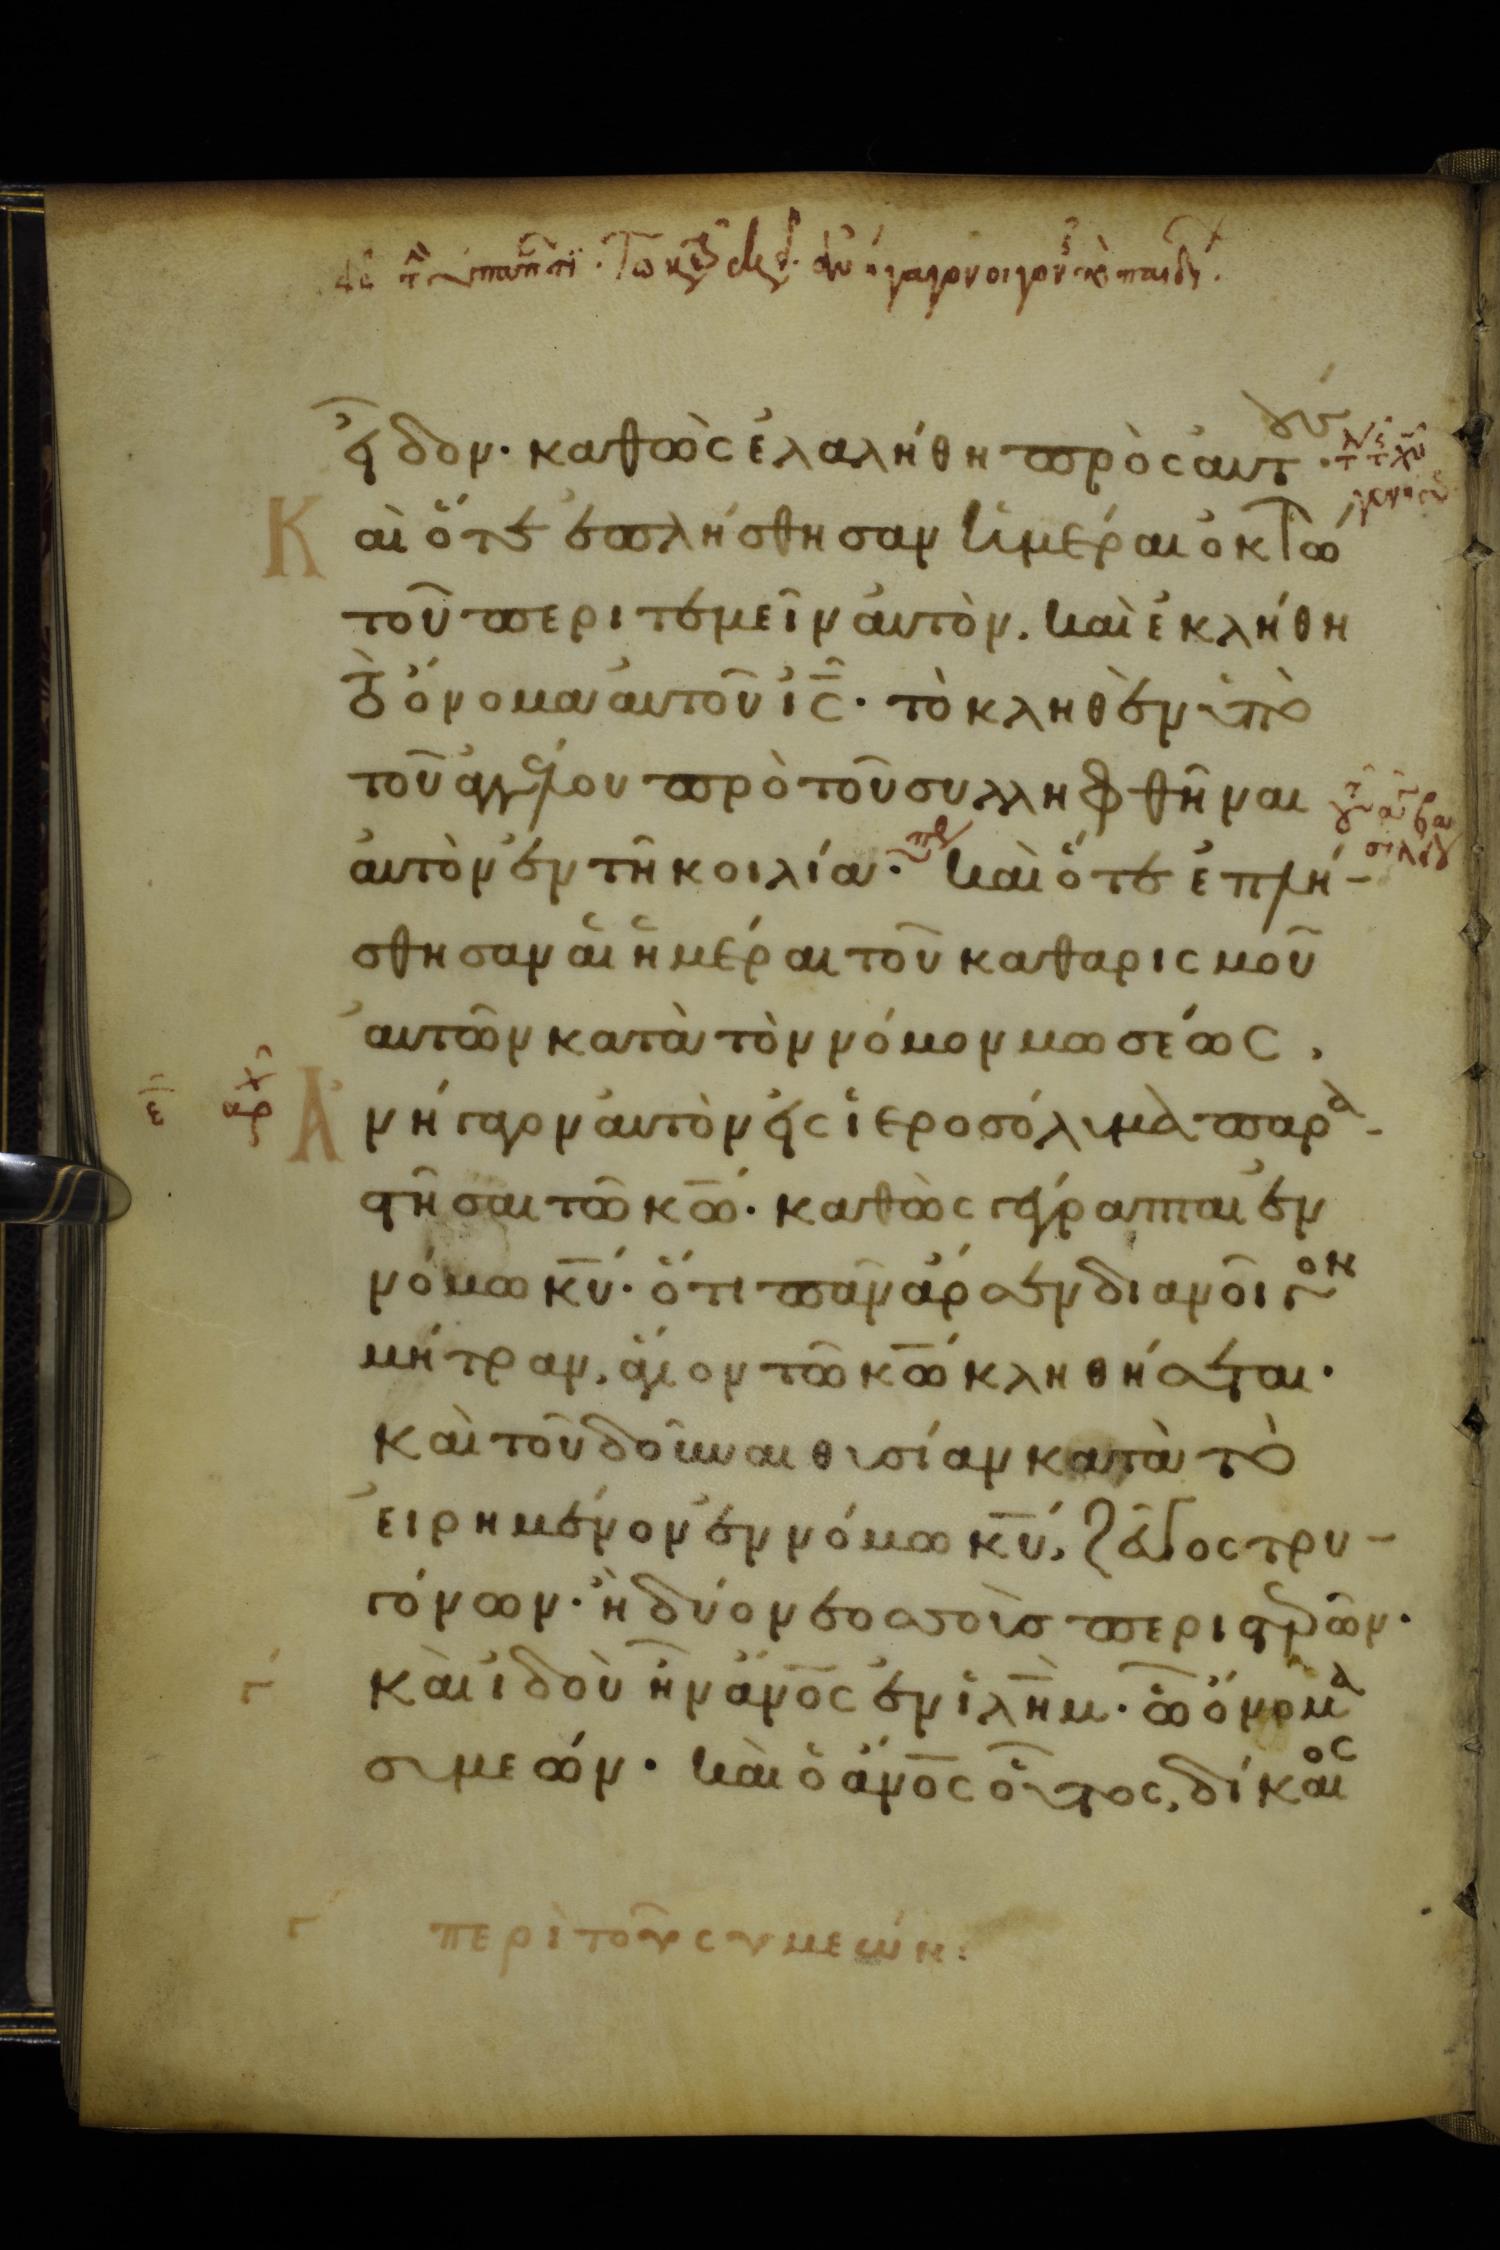 εἶδον· καθὼς ἐλαλήθη πρὸς αὐτούς·
Καὶ ὅτε ἐπλήσθησαν ἡμέραι ὀκτὼ
τοῦ περιτεμεῖν αὐτὸν. καὶ ἐκλήθη
τὸ ὄνομα αὐτοῦ ἰς̅· τὸ κληθὲν ὑπὸ
τοῦ ἀγγέλου πρὸ τοῦ συλληφθῆναι
αὐτὸν ἐν τῆ κοιλία· καὶ ὅτε ἐπλή-
σθησαν αἱ ἡμέραι τοῦ καθαρισμοῦ
αὐτῶν κατὰ τὸν νόμον μωσέως,
ε̅ ἀρχ Ἀνήγαγον αὐτὸν εἰς ἱεροσόλυμα παρα-
στῆσαι τῶ κ̅ω̅· καθὼς γέγραπται ἐν
νόμω κ̅υ̅· ὅτι πᾶν ἄρσεν διανοῖγον
μήτραν, ἅγιον τῶ κ̅ω̅ κληθήσεται·
καὶ τοῦ δοῦναι θυσίαν κατὰ τὸ
εἰρημένον ἐν νόμω κ̅υ̅, ζεῦγος τρυ-
γόνων· ἢ δύο νεοσσοὺσ περιστερῶν·
γ καὶ ἰδοὺ ἦν ἄν̅ο̅ς ἐν ἱλ̅ήμ· ὧ ὄνομα
συμεών· καὶ ὁ ἄν̅ο̅ς οὗτος, δίκαιος
γ περὶ τοῦ συμεών: